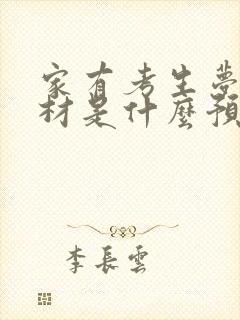 家有考生夢
材是什麼預
李長雲